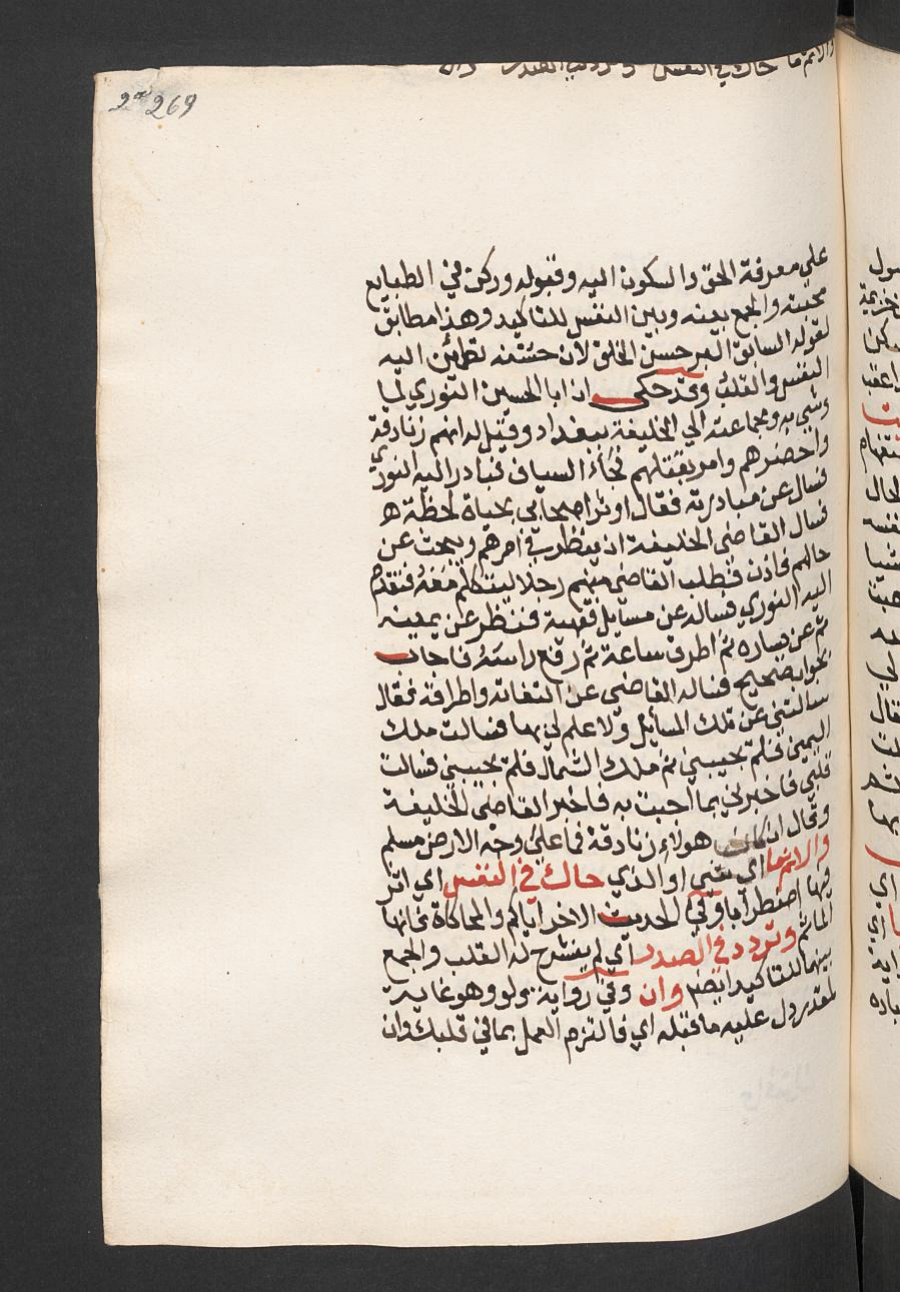 والاثم ما حاك في النفس وتردد في الصدر وان
269
على معرفة الحق والسكون اليه وقبوله وركن في الطبايع
محبته والجمع بينه وبين النفس للتاكيد وهذا مطابق
لقوله السابق البر حسن الخلق لان حسنه تطمئن اليه
النفس والقلب وقد حكي ان ابا الحسين النوري لما
وشي به وبجماعته الي الخليفة ببغداد وقيل له انهم زنادقة
واحضرهم وامر بقتلهم فجاء السياف فبادر اليه النوري
فسال عن مبادرته فقال اوثر اصحابي بحياة لحظة
فسال القاضي الخليفة ان ينظر في امرهم ويبحث عن
حالهم فاذن فطلب القاضي منهم رجلا ليتكلم معه فتقدم
اليه النوري فساله عن مسايل فقهية فنظر عن يمينه
ثم عن يساره ثم اطرق ساعة ثم رفع راسه فاجاب
بجواب صحيح فساله القاضي عن التفاته واطراقه فقال
سالتني عن تلك المسائل ولا علم لي بها فسالت ملك
اليمين فلم يجيبني ثم ملك الشمال فلم يجيبني فسالت
قلبي فاخبرني بما اجبت به فاخبر القاضي الخليفة
وقال ان كانت هولاء زنادقة فما على وجه الارض مسلم
والاثم ما اي شي او الذي حاك في النفس اي اثر
فيها اضطرابا وفي الحديث الاخر اياكم والمحاكاة فانها
الماثم وتردد في الصدر اي لم ينشرح له القلب والجمع
بينهما للتاكيد ايضا وان وفي رواية ولو وهو غاية
لمقدر دل عليه ما قبله اي فالتزم العمل بما في قلبك وان